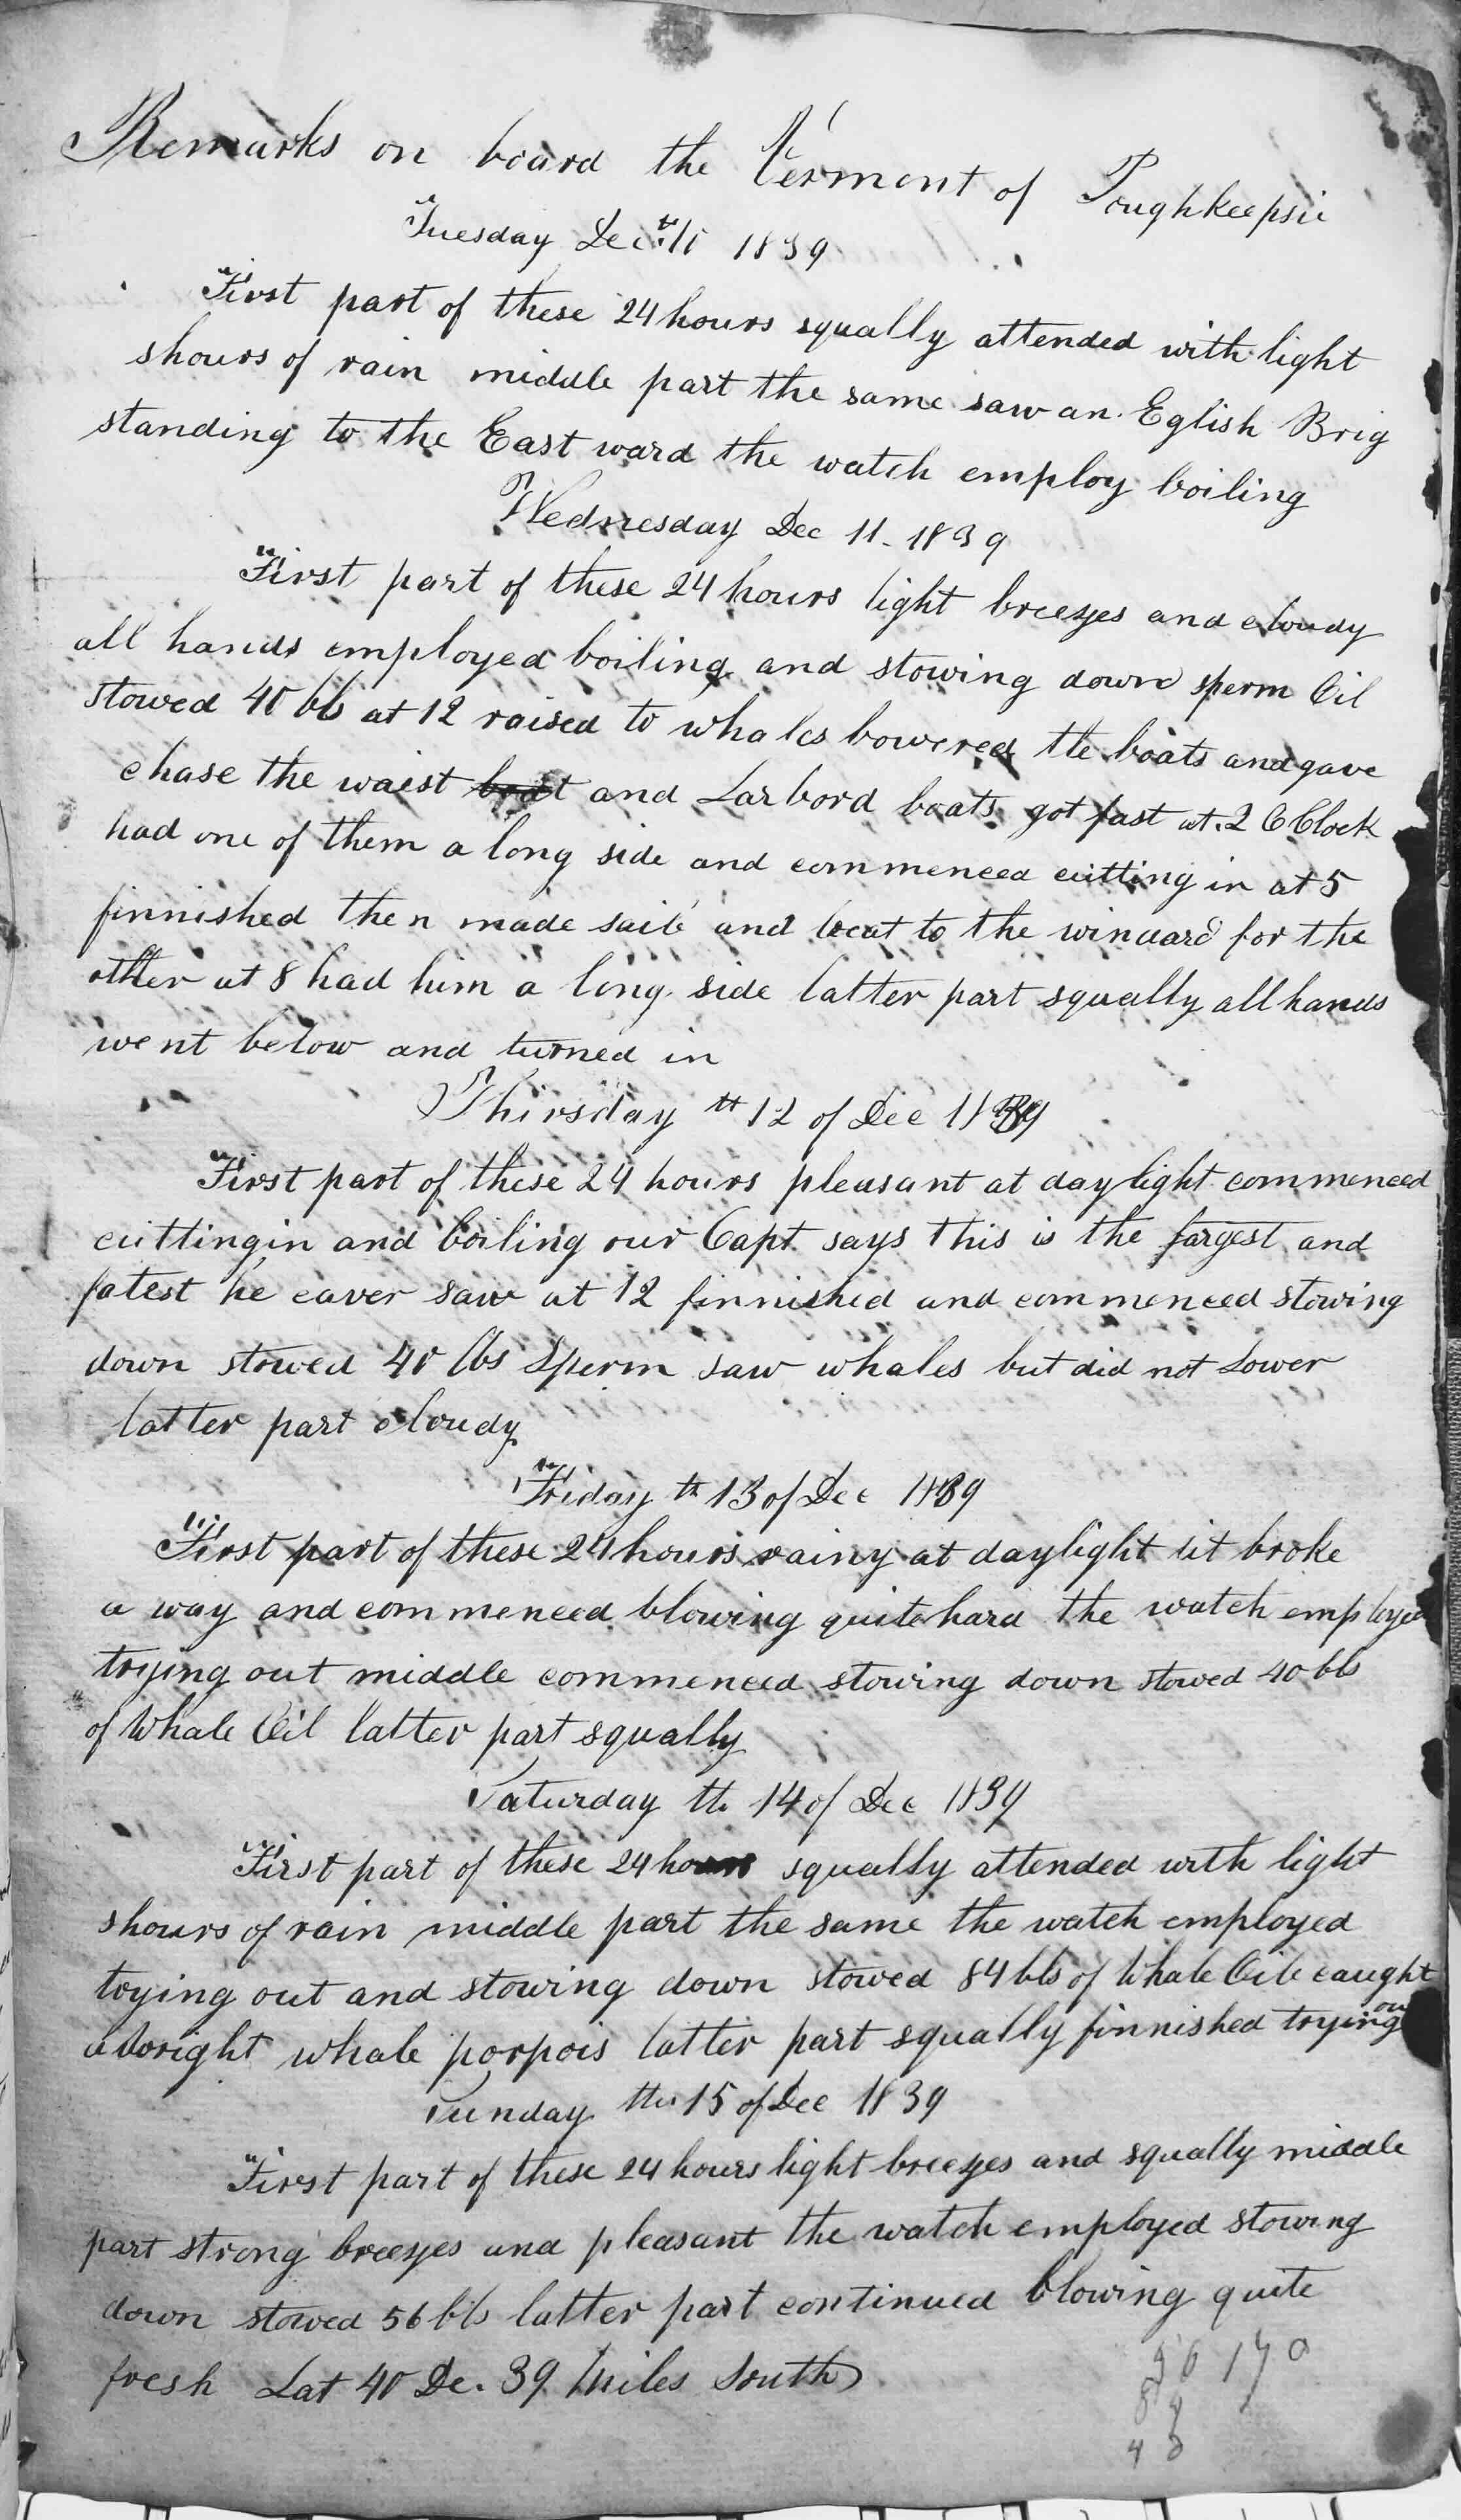 Remarks on board the Vermont of Poughkeepsie
Tuesday Dec. 10 1839
First part of these 24 hours squally attended with light
shours of rain middle part the same saw an Eglish Brig
standing to the East ward the watch employ boiling
Wednesday Dec 11. 1839
First part of these 24 hours light breezes and cloudy
all hands employed boiling and stowing down sperm Oil
stowed 40 bls at 12 raised to whales bowered the boats and gave
chase the waist boat and Larbord boats got fast at 2 O Clock
had one of them a long side and commenced cutting in at 5
finnished then made sail and beat to the winuard for the
other at 8 had him a long side latter part squally all hands
went below and turned in
Thirsday th 12 of Dec 1839
First part of these 24 hours pleasant at daylight commenced
cuttingin and boiling our Capt says this is the largest and
fatest he eaver saw at 12 finnished and commenced stowing
down stowed 40 lbs Sperm saw whales but did not Lower
latter part cloudy
Friday th 13 of Dec 1839
First part of these 24 hours rainy at daylight it broke
a way and commenced blowing quite hard the watch employed
trying out middle commenced stowing down stowed 40 bls
of Whale Oil latter part squally
Saturday th 14 of Dec 1839
First part of these 24 hours squally attended with light
shours of rain middle part the same the watch employed
trying out and stowing down stowed 84 bls of Whale Oil caught
a boright whale porpois latter part squally finnished trying out
Sunday the 15 of Dec 1839
First part of these 24 hours light breezes and squally middle
part strong breezes and pleasant the watch employed stowing
down stowed 56 bls latter part continued blowing quite
fresh Lat 40 De. 39 Miles South
56 170
84
40